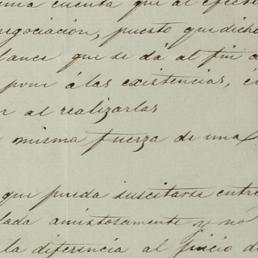 una cuenta que al efecto
negociación, puesto que dicho
lance que se dá al fin a
pour á las existencias, c
r al realizarlas
misma fuerza de una
que pueda suscitarse entre
lada amistosamente y no
la diferencia al juicio d